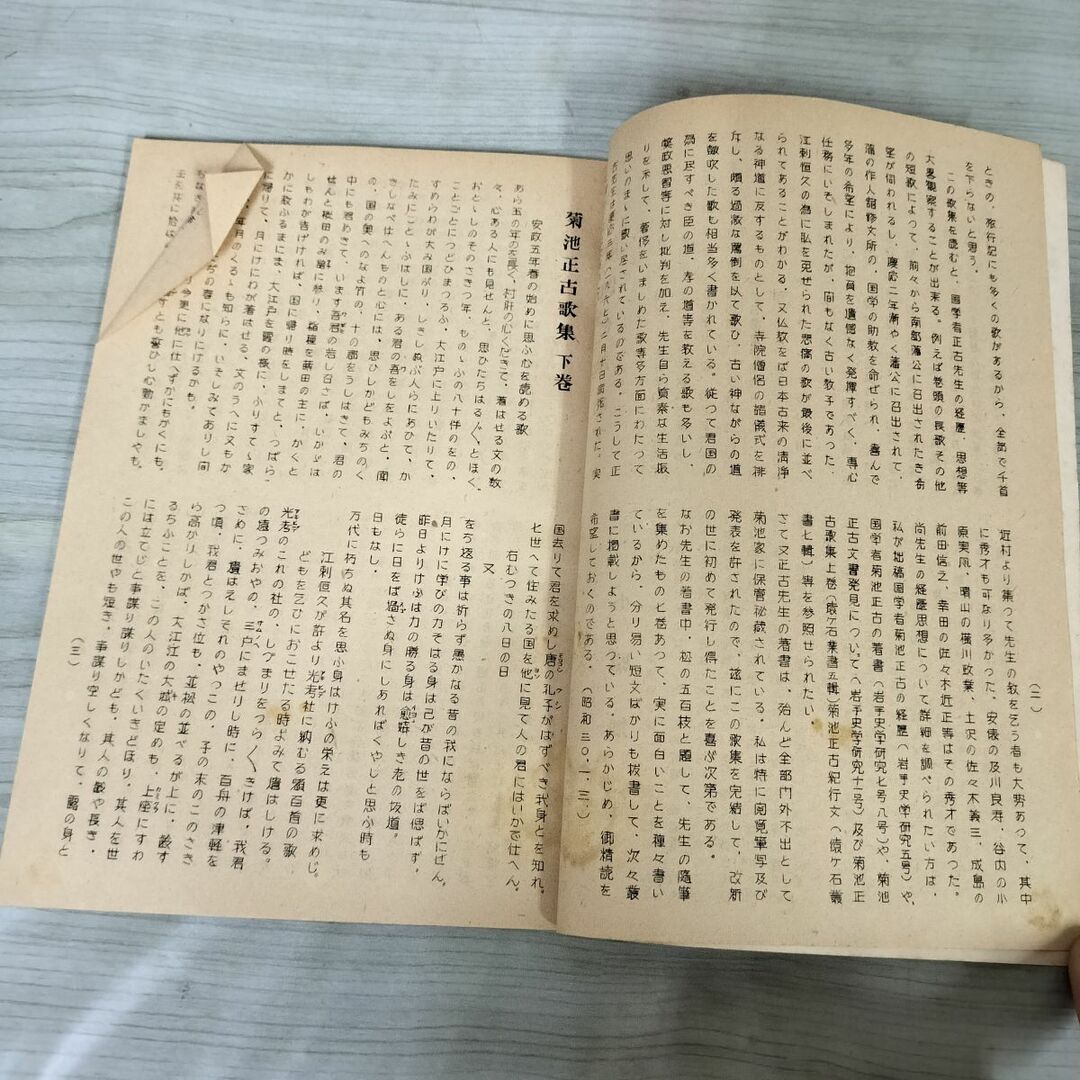 ときの、旅行記にも多くの歌があるから、全部で千首
を下らないと思う。
この歌集を読むと、国学者正古先生の経歴、思想等
大畧観察することが出来る。例えば巻頭の長歌その他
の短歌によって、前々から南部藩公に召出されたき希
望が伺われるし、慶応二年漸やく藩公に召出されて、
藩の作人館修文所の、国学の助教を命ぜられ、喜んで
多年の希望により、抱負を遺憾なく発揮すべく、専心
任務にいそしまれたが、間もなく古い教子であった、
江刺恒久の為に私を免ぜられた悲痛の歌が最後に並べ
られてあることがわかる。又仏教をば日本古来の清浄
なる神道に反するものとして、寺院僧侶の諸儀式を排
斥し、頗る過激な罵倒を以て歌ひ、古い神ながらの道
を鼓吹した歌も相当多く書かれている。従つて君国の
為に尽すべき臣の道、孝の道等を教える歌も多いし、
弊政悪習等に対し批判を加え、先生自ら質素な生活振
りを示して、奢侈をいましめた歌等多方面にわたって
思いのまゝに歌い尽されているのである。こうして正
近村より集って先生の教を乞う者も大勢あって、其中
に秀才も可なり多かった。安俵の及川良寿、谷内の小
原実風、晴山の横川政業、土沢の佐々木義三、成島の
前田信之、幸田の佐々木近正等はその秀才であった。
尚先生の経歴思想について詳細を調べられたい方は、
私が出稿国学者菊池正古の経歴(岩手史学研究五号)や、
国学者菊池正古の著書(岩手史学研究七号八号)や、菊池
正古文書発見について(岩手史学研究十二号)及び菊池正
古歌集上巻(猿ヶ石叢書五輯)菊池正古紀行文(猿ヶ石叢
書七輯)等を参照せられたい。
さて又正古先生の著書は、殆んど全部門外不出として
菊池家に保管秘蔵されている。私は特に閲覧筆写及び
発表を許されたので、遂にこの歌集を完結して、改新
の世に初めて発行し得たことを喜ぶ次第である。
なお先生の著書中、松の五百枝と題して、先生の随筆
を集めたもの七巻あって、実に面白いことを種々書い
ているから、分り易い短文ばかりも抜書して、次々叢
書に掲載しようと思っている。あらかじめ、御精読を
希望しておくのである。(昭和三〇、一、三一)
(二)
菊池正古歌集 下巻
安政五年春の始めに思ふ心を読める歌
あら玉の年を長く、村肝の心くだきて、著はせる文の数
々、心ある人にも見せんと、思ひたちはる〲とほく、
おとゝしのそのさきつ年、ものゝふの八十伴のをの、
ことごとにつどひまつろふ、大江戸に上りいたりて、
すめらわが大み国ぶり、しきしぬぶ人らにあひて、か
たみにことゝふはしに、ある君の吾をしをよぶと、聞
きしなべ仕へんものと心には、思ひしかどもみちのく
の、国の奥へのなよ竹の、十の郡をうしはきて、君の
中にも君めきて、います吾君の若し召さば、いかゞは
せんと桜田のみ館に参り、
しもわが告げければ、国に帰り時をしまてと、つばら
かに教ふるまにま、大江戸を霞の夜に、ふりすてゝ家
に帰りて、月にけにわが著はせる、文のうへに又もか
年月のくるゝも知らに、いそしみてありし間
ちの春になりにけるかも。
今更に他に仕へずかにもかくにも、
とも奪ひし心動かましやも。
国去りて君を求めし唐の孔子がはずべき我身とを知れ。
七世へて住みたる国を他に見て人の君にはいかで仕へん。
右むつきの八日の日
又
をち返る事は祈らず愚かなる昔の我にならばいかにせん。
月にけに学びの力そはる身は己が昔の世をば偲ばず。
昨日よりけふは力の勝る身は愈嬉しき老の坂道。
徒らに日をば過さぬ身にしあればくやしと思ふ時も
日もなし。
万代に朽ちぬ其名を思ふ身はけふの栄えは更に求めじ。
江刺恒久が許より光考社に納むる頌百首の歌
どもを乞ひにおこせたる時よみて唐はしける。
光考のこれの社の、しゞまりをつら〱きけば、我君
の遠つみおやの、三戸にませりし時に、百舟の津軽を
さめに、遣はえしそれのやつこの、子の末のこのさき
つ頃、我君とつかさ位も、並松の並べるが上に、齢す
ら高かりしかば、大江江の大城の定めも、上座にすわ
るちふことを、この人のいたくいきどほり、其人を世
には立てじと事謀り謀りしかども、其人の齢や長き、
この人の世やも短き、事謀り空しくなりて、露の身と
(三)